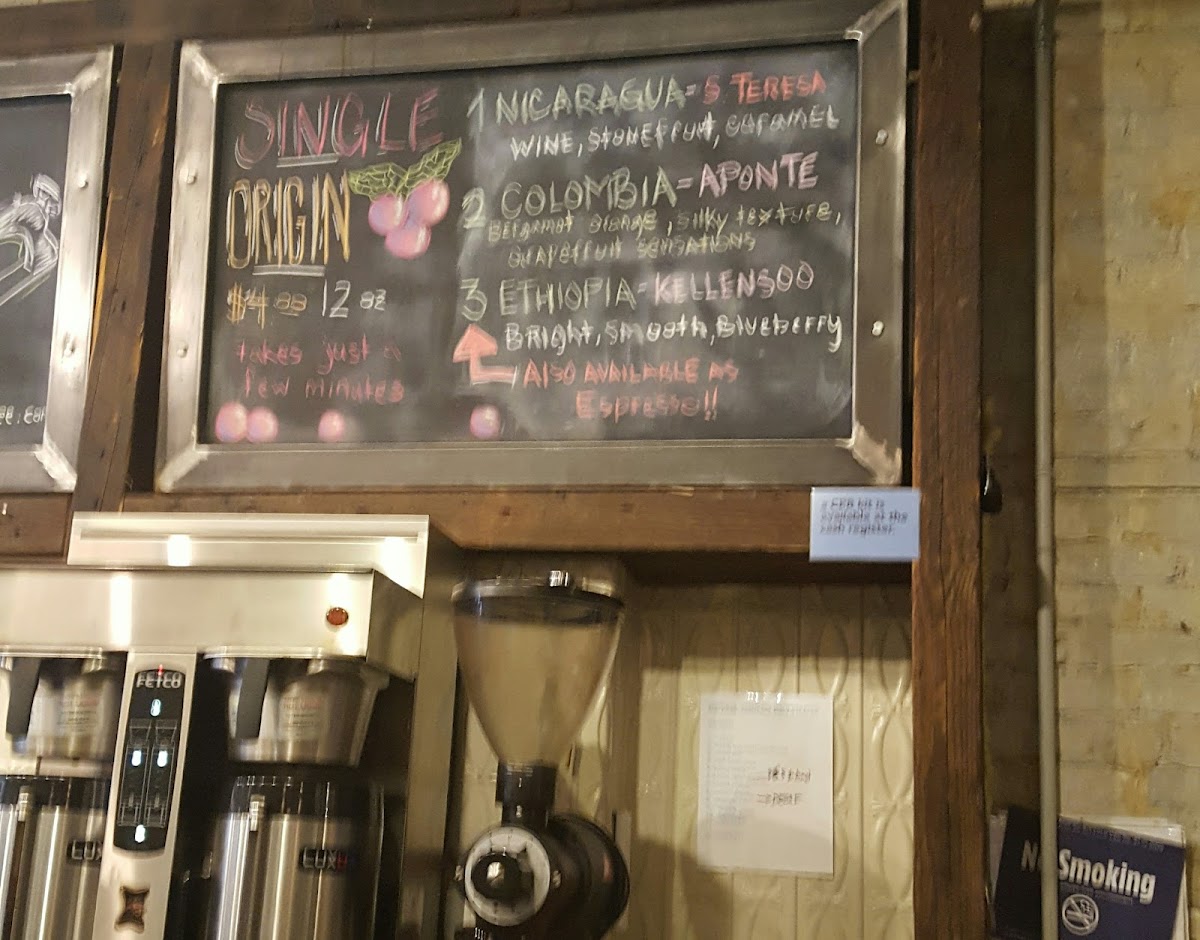 SINGLE
ORIGIN
$4.00 12 oz
takes just a
few minutes
1 NICARAGUA = S TERESA
WINE, Stonefruit, caramel
2 COLOMBIA = APONTE
Bergamot orange, silky texture,
Grapefruit SENSATIONS
3 ETHIOPIA - KELLENSOO
Bright, Smooth, Blueberry
Also AVAILABLE AS
Espresso!!
available at the
cash register.
FETCO
LUX
LUX
No Smoking